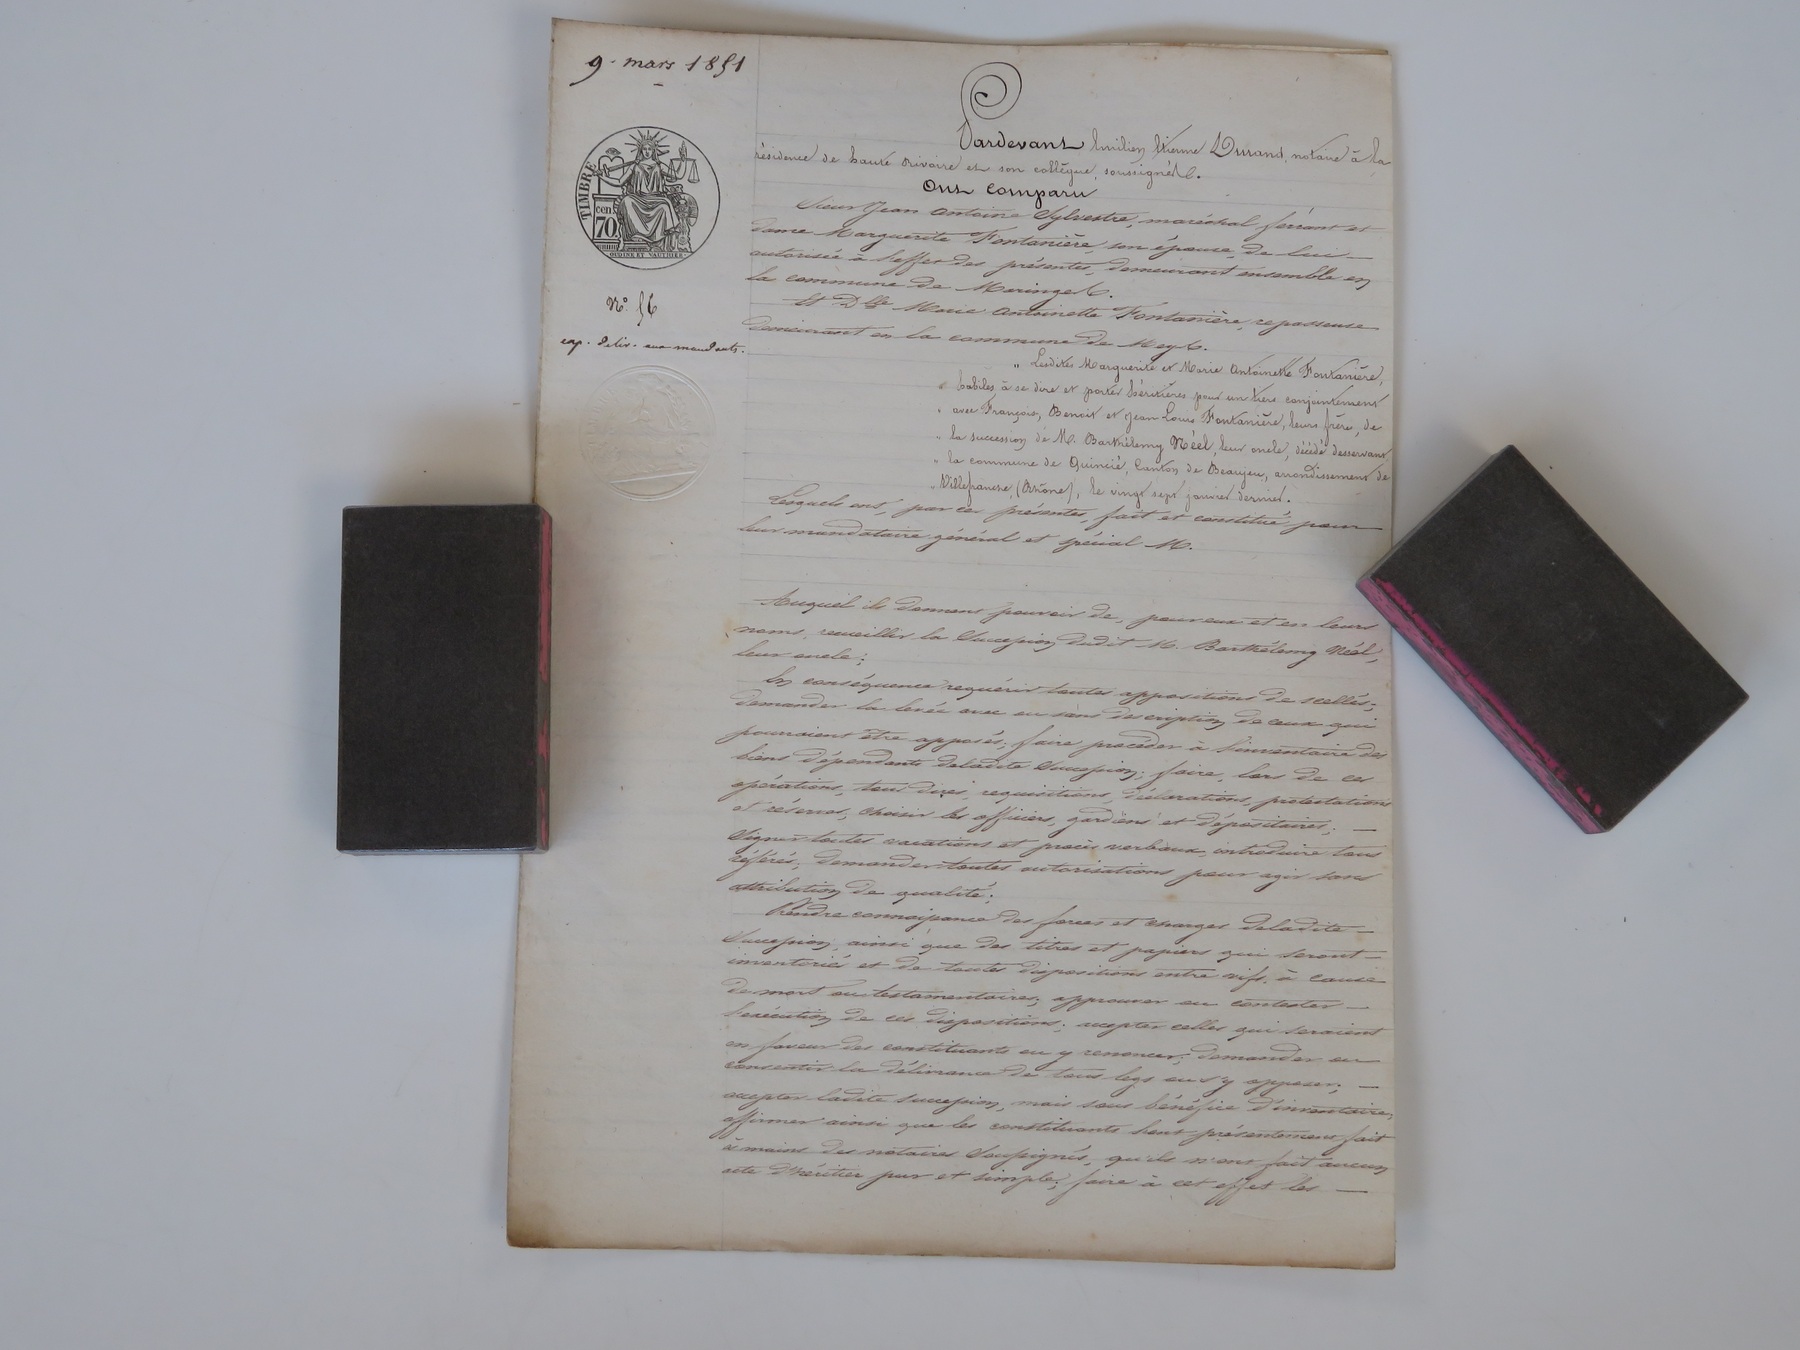 9. mars 1851
TIMBRE
cen.
70
OUDINE ET VAUTHIER
N.° 56
exp. deliv. aux mandants.
Pardevant Emilien Etienne Durand, notaire à la
résidence de haute rivoire et son collègue, soussignés.
Ont comparu
Sieur Jean Antoine Sylvestre, maréchal ferrant et
dame Marguerite Fontanière, son épouse, de lui
autorisée à l'effet des présentes, demeurant ensemble en
la commune de Maringes.
Et Dlle Marie Antoinette Fontanière, repasseuse
demeurant en la commune de Meys.
„ Lesdites Marguerite et Marie Antoinette Fontanière,
„ habiles à se dire et porter héritières pour un tiers conjointement
„ avec François, Benoit et Jean Louis Fontanière, leurs frère, de
„ la succession de M. Barthélemy Néel, leur oncle, décédé desservant
„ la commune de Quincié, Canton de Beaujeu, arrondissement de
„ Villefranche (Rhône), le vingt sept janvier dernier.
Lesquels ont, par ces présentes, fait et constitué pour
leur mandataire général et spécial M.
Auquel ils donnent pouvoir de, pour eux et en leurs
noms, recueillir la Succession dudit M. Barthélemy Néel,
leur oncle;
En conséquence requérir toutes appositions de scellés;
demander la levée avec ou sans description de ceux qui
pourraient être apposés; faire procéder à l'inventaire des
biens dépendants deladite Succession; faire, lors de ces
opérations, tous dires, requisitions, déclarations, protestations
et réserves, choisir les officiers, gardiens et dépositaires;
Signer toutes vacations et procès verbaux, introduire tous
référés, demander toutes autorisations pour agir sans
attribution de qualité;
Prendre connaissance des forces et charges deladite
Succession, ainsi que des titres et papiers qui seront
inventoriés et de toutes dispositions entre vifs, à cause
de mort ou testamentaires; approuver ou contester
l'exécution de ces dispositions; accepter celles qui seraient
en faveur des constituants ou y renoncer; demander ou
consentir la délivrance de tous legs ou s'y opposer;
accepter ladite succession, mais sous bénéfice d'inventaire,
affirmer ainsi que les constituants l'ont présentement fait
à mains des notaires Soussignés, qu'ils n'ont fait aucun
acte d'héritier pur et simple; faire à cet effet les